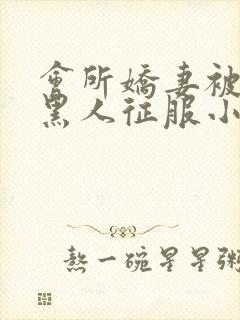 會所嬌妻被
黑人征服小
熬一碗星星粥